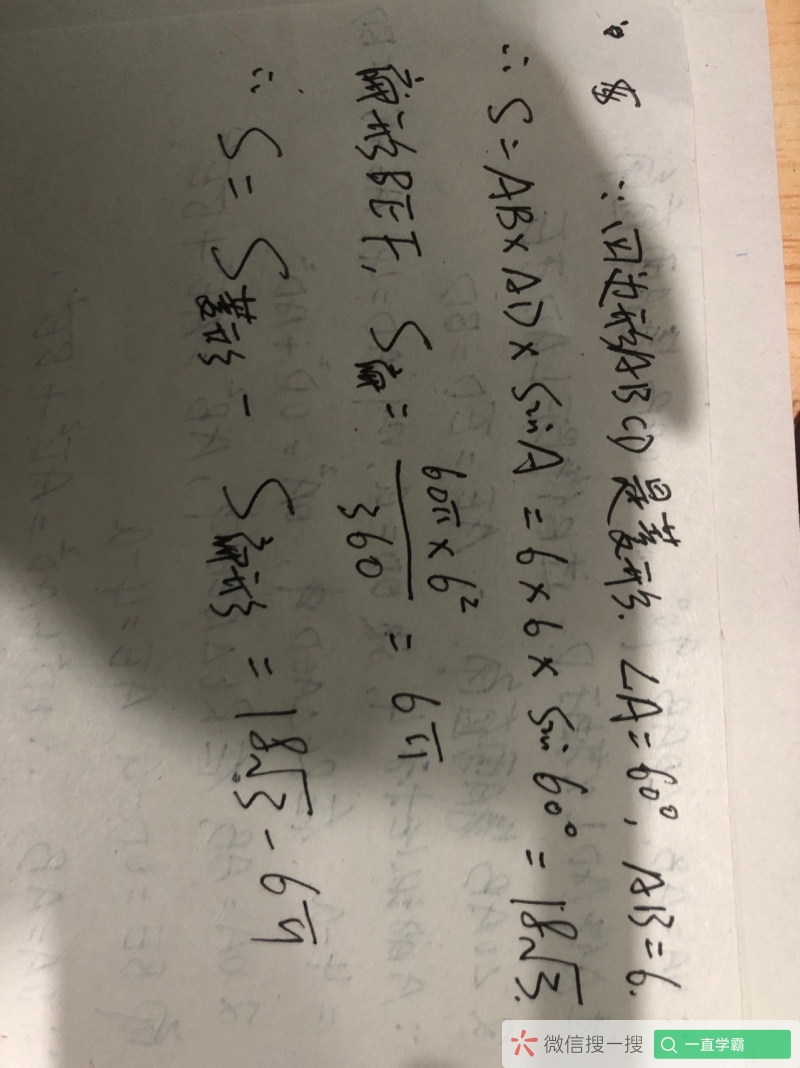 ∵四边形ABCD是菱形. ∠A=60°, AB=6.
∴ S=AB×AD×sinA=6×6×sin60°=18√3.
扇形BEF, S扇=60π×6²/360=6π
∴ S=S菱形-S扇形=18√3-6π
微信搜一搜 一直学霸